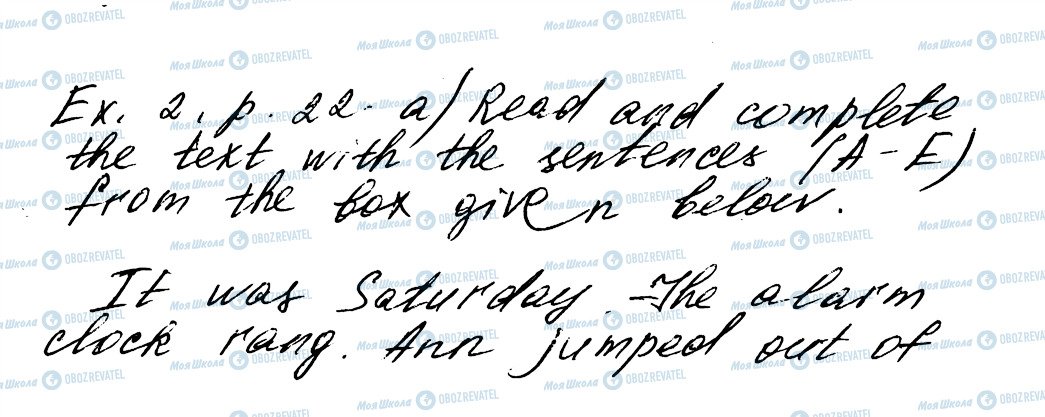 Ex. 2, p. 22- a) Read and complete
the text with the sentences (A-E)
from the box given below.
It was Saturday. The alarm
clock rang. Ann jumped out of